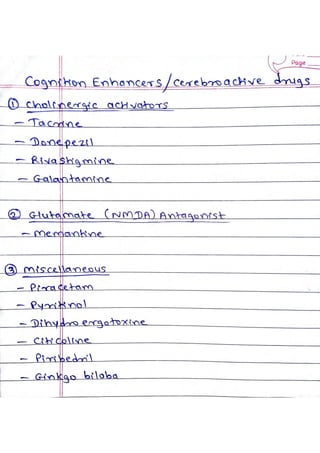 Page
Cognition Enhancers/cerebroactive drugs
① Cholinergic activators
- Tacrine
- Donepezil
- Rivastigmine
- Galantamine
② Glutamate (NMDA) Antagonist
- memantine
③ miscellaneous
- Piracetam
- Pyritinol
- Dihydroergotoxine
- Citicoline
- Piribedril
- Ginkgo biloba